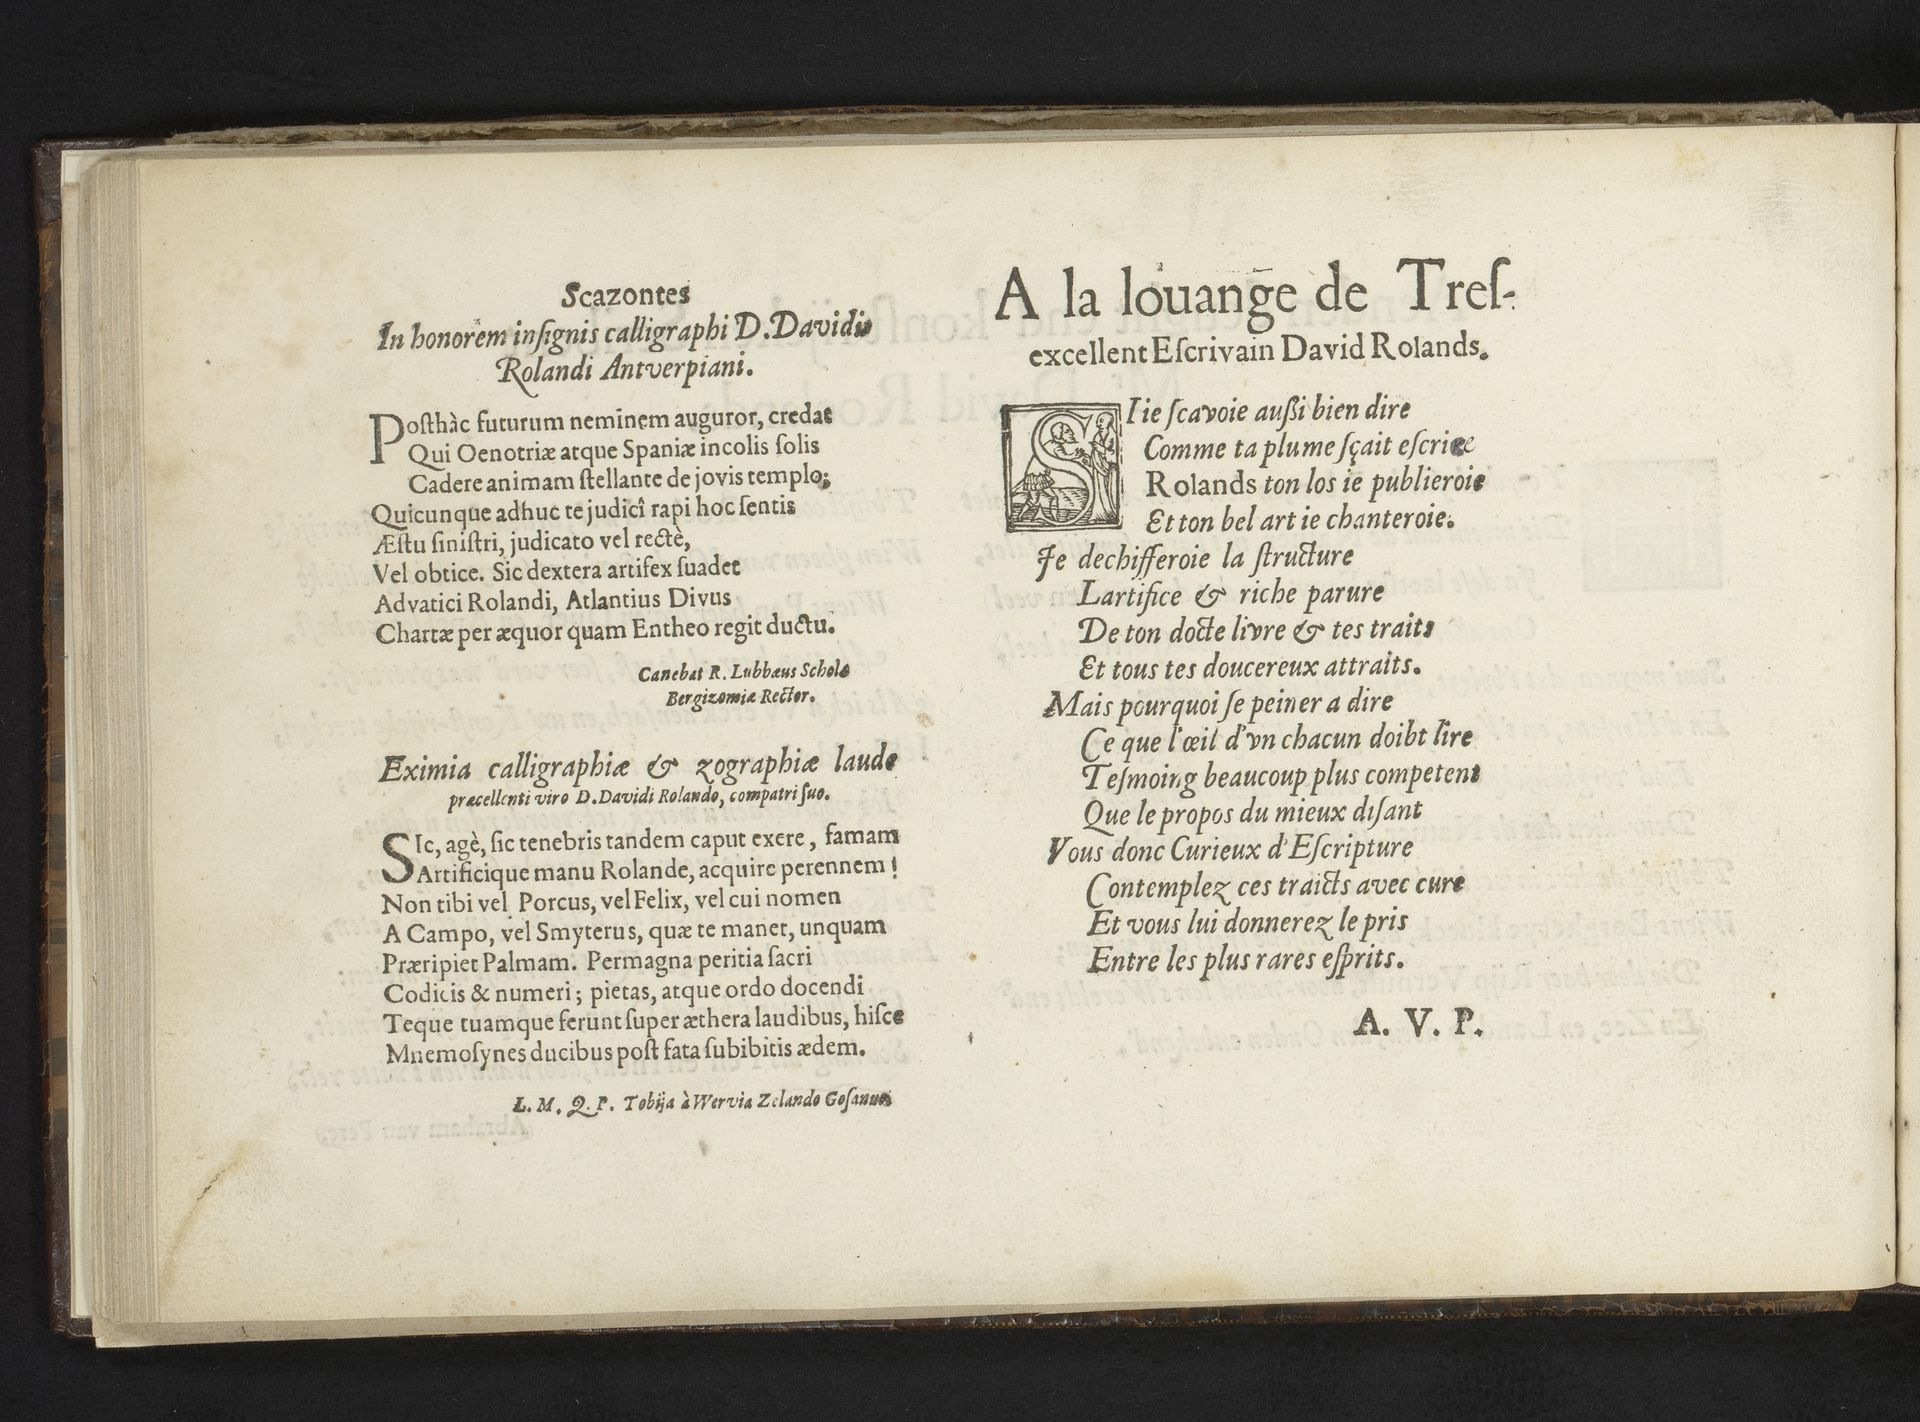 Scazontes
In honorem inſignis calligraphi D. Davidis
Rolandi Antverpiani.
Poſthàc futurum nemīnem auguror, credat
Qui Oenotriæ atque Spaniæ incolis ſolis
Cadere animam ſtellante de jovis templo;
Quicunque adhuc te judicî rapi hoc ſentis
Æſtu ſiniſtri, judicato vel rectè,
Vel obtice. Sic dextera artifex ſuadet
Advatici Rolandi, Atlantius Divus
Chartæ per æquor quam Entheo regit ductu.
Canebat R. Lubbæus Scholæ
Bergizomiæ Rector.
Eximia calligraphiæ & zographiæ laude
præcellenti viro D. Davidi Rolando, compatri ſuo.
SIc, agè, ſic tenebris tandem caput exere, famam
Artificique manu Rolande, acquire perennem!
Non tibi vel Porcus, vel Felix, vel cui nomen
A Campo, vel Smyterus, quæ te manet, unquam
Præripiet Palmam. Permagna peritia ſacri
Codicis & numeri; pietas, atque ordo docendi
Teque tuamque ferunt ſuper æthera laudibus, hiſce
Mnemoſynes ducibus poſt fata ſubibitis ædem.
L. M. Q. P. Tobija à Wervia Zelando Goſanus
A la louange de Treſ-
excellent Eſcrivain David Rolands.
SI ie ſcavoie auſſi bien dire
Comme ta plume ſçait eſcrire
Rolands ton los ie publieroie
Et ton bel art ie chanteroie.
Je dechifferoie la ſtructure
Lartifice & riche parure
De ton docte livre & tes traits
Et tous tes doucereux attraits.
Mais pourquoi ſe peiner a dire
Ce que l'œil d'vn chacun doibt lire
Teſmoing beaucoup plus competent
Que le propos du mieux diſant
Vous donc Curieux d'Eſcripture
Contemplez ces traicts avec cure
Et vous lui donnerez le pris
Entre les plus rares eſprits.
A. V. P.